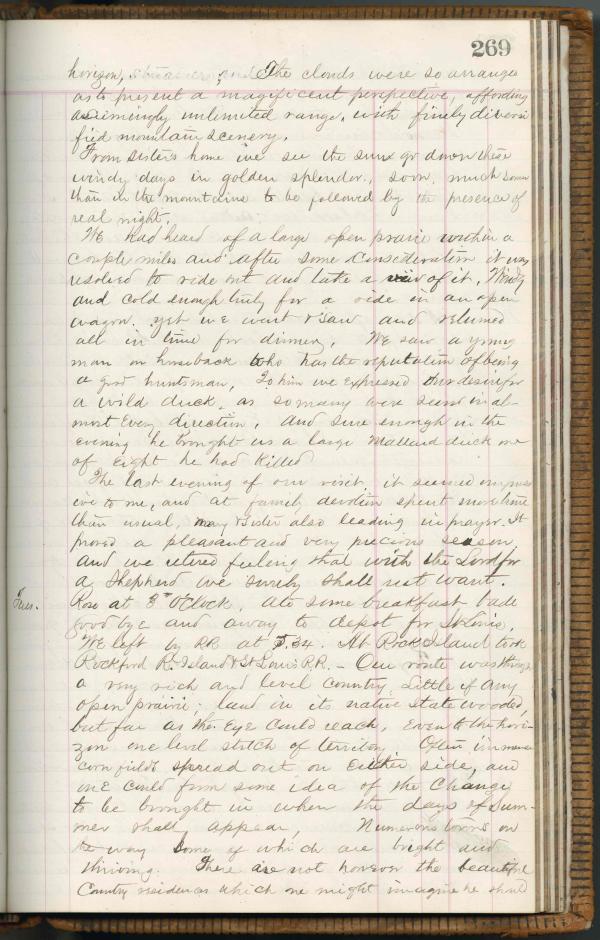 269
horizon, The clouds were so arranged
as to present a magnificent perspective, affording
a seemingly unlimited range, with finely diversi
fied mountain scenery.
From sister's home we see the sun go down these
windy days in golden splendor, soon, much sooner
than in the mountains to be followed by the presence of
real night.
We had heard of a large open prairie within a
couple miles and after some consideration it was
resolved to ride out and take a view of it, Windy
and cold enough truly for a ride in an open
wagon. yet we went & saw and returned
all in time for dinner. We saw a young
man on horseback who has the reputation of being
a good huntsman, To him we expressed desire for
a wild duck, as so many were seen in al-
most every direction, and sure enough in the
evening he brought us a large Mallard duck one
of eight he had killed
The last evening of our visit, it seemed impress
ive to me, and at family devotion spent more time
than usual, may & sister also leading in prayer. It
proved a pleasant and very precious season,
and we retired feeling that with the Lord for
a Shepherd we surely shall not want.
Tues.
Rose at 3 O'Clock, ate some breakfast bade
good bye and away to depot for St Louis,
We left by RR at 5.34. At Rock Island took
Rockford R. Island & St Louis R.R. - Our route was through
a very rich and level country, little if any
open prairie; land in its native state wooded,
but far as the Eye could reach, even to the hori-
zon one level stretch of territory Often immense
corn fields spread out on either side, and
one could form some idea of the change
to be brought in when the days of sum-
mer shall appear, Numerous towns on
the way some of which are bright and
thriving. There are not however the beautiful
Country residences which one might imagine he should